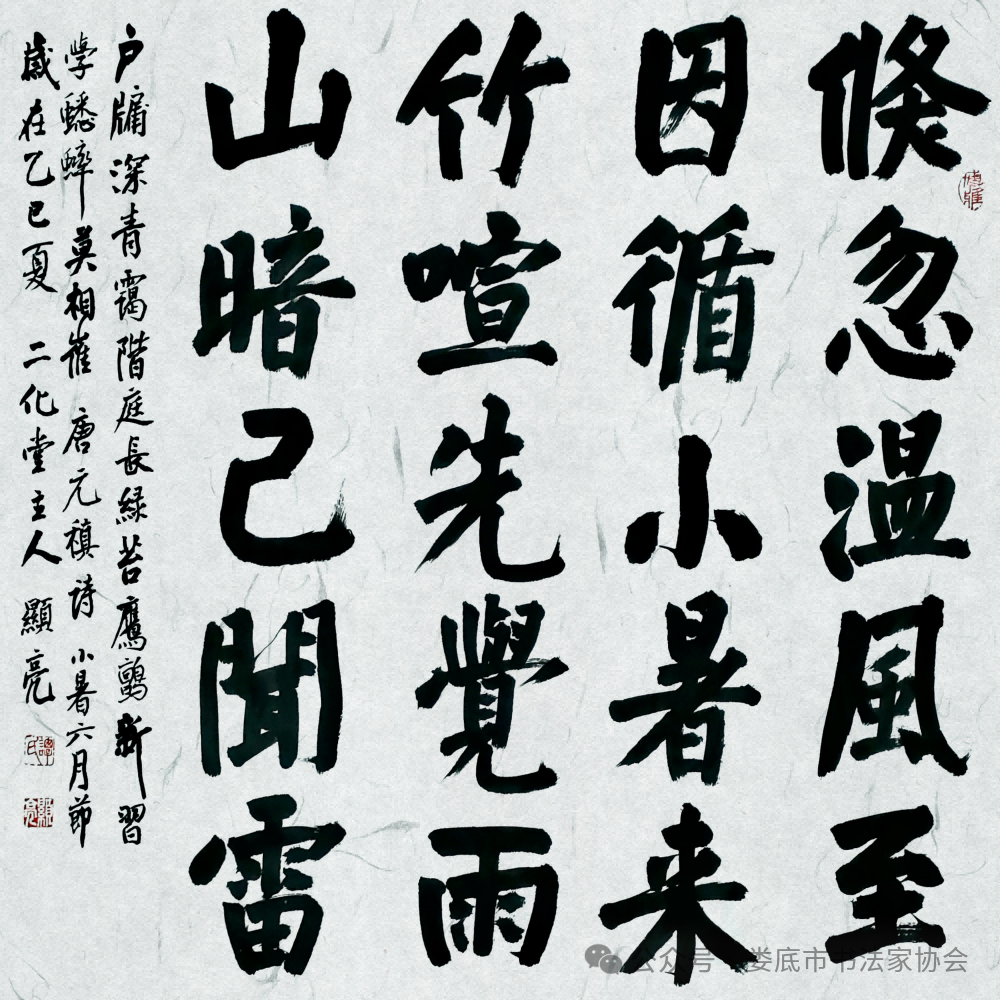 倏忽温風至
因循小暑来
竹喧先覺雨
山暗已聞雷
户牖深青靄階庭長緑苔鷹鸇新習
學蟋蟀莫相崔 唐元稹诗 小暑六月節
歳在乙巳夏 二化堂主人 顯亮
公众号 娄底市书法家协会